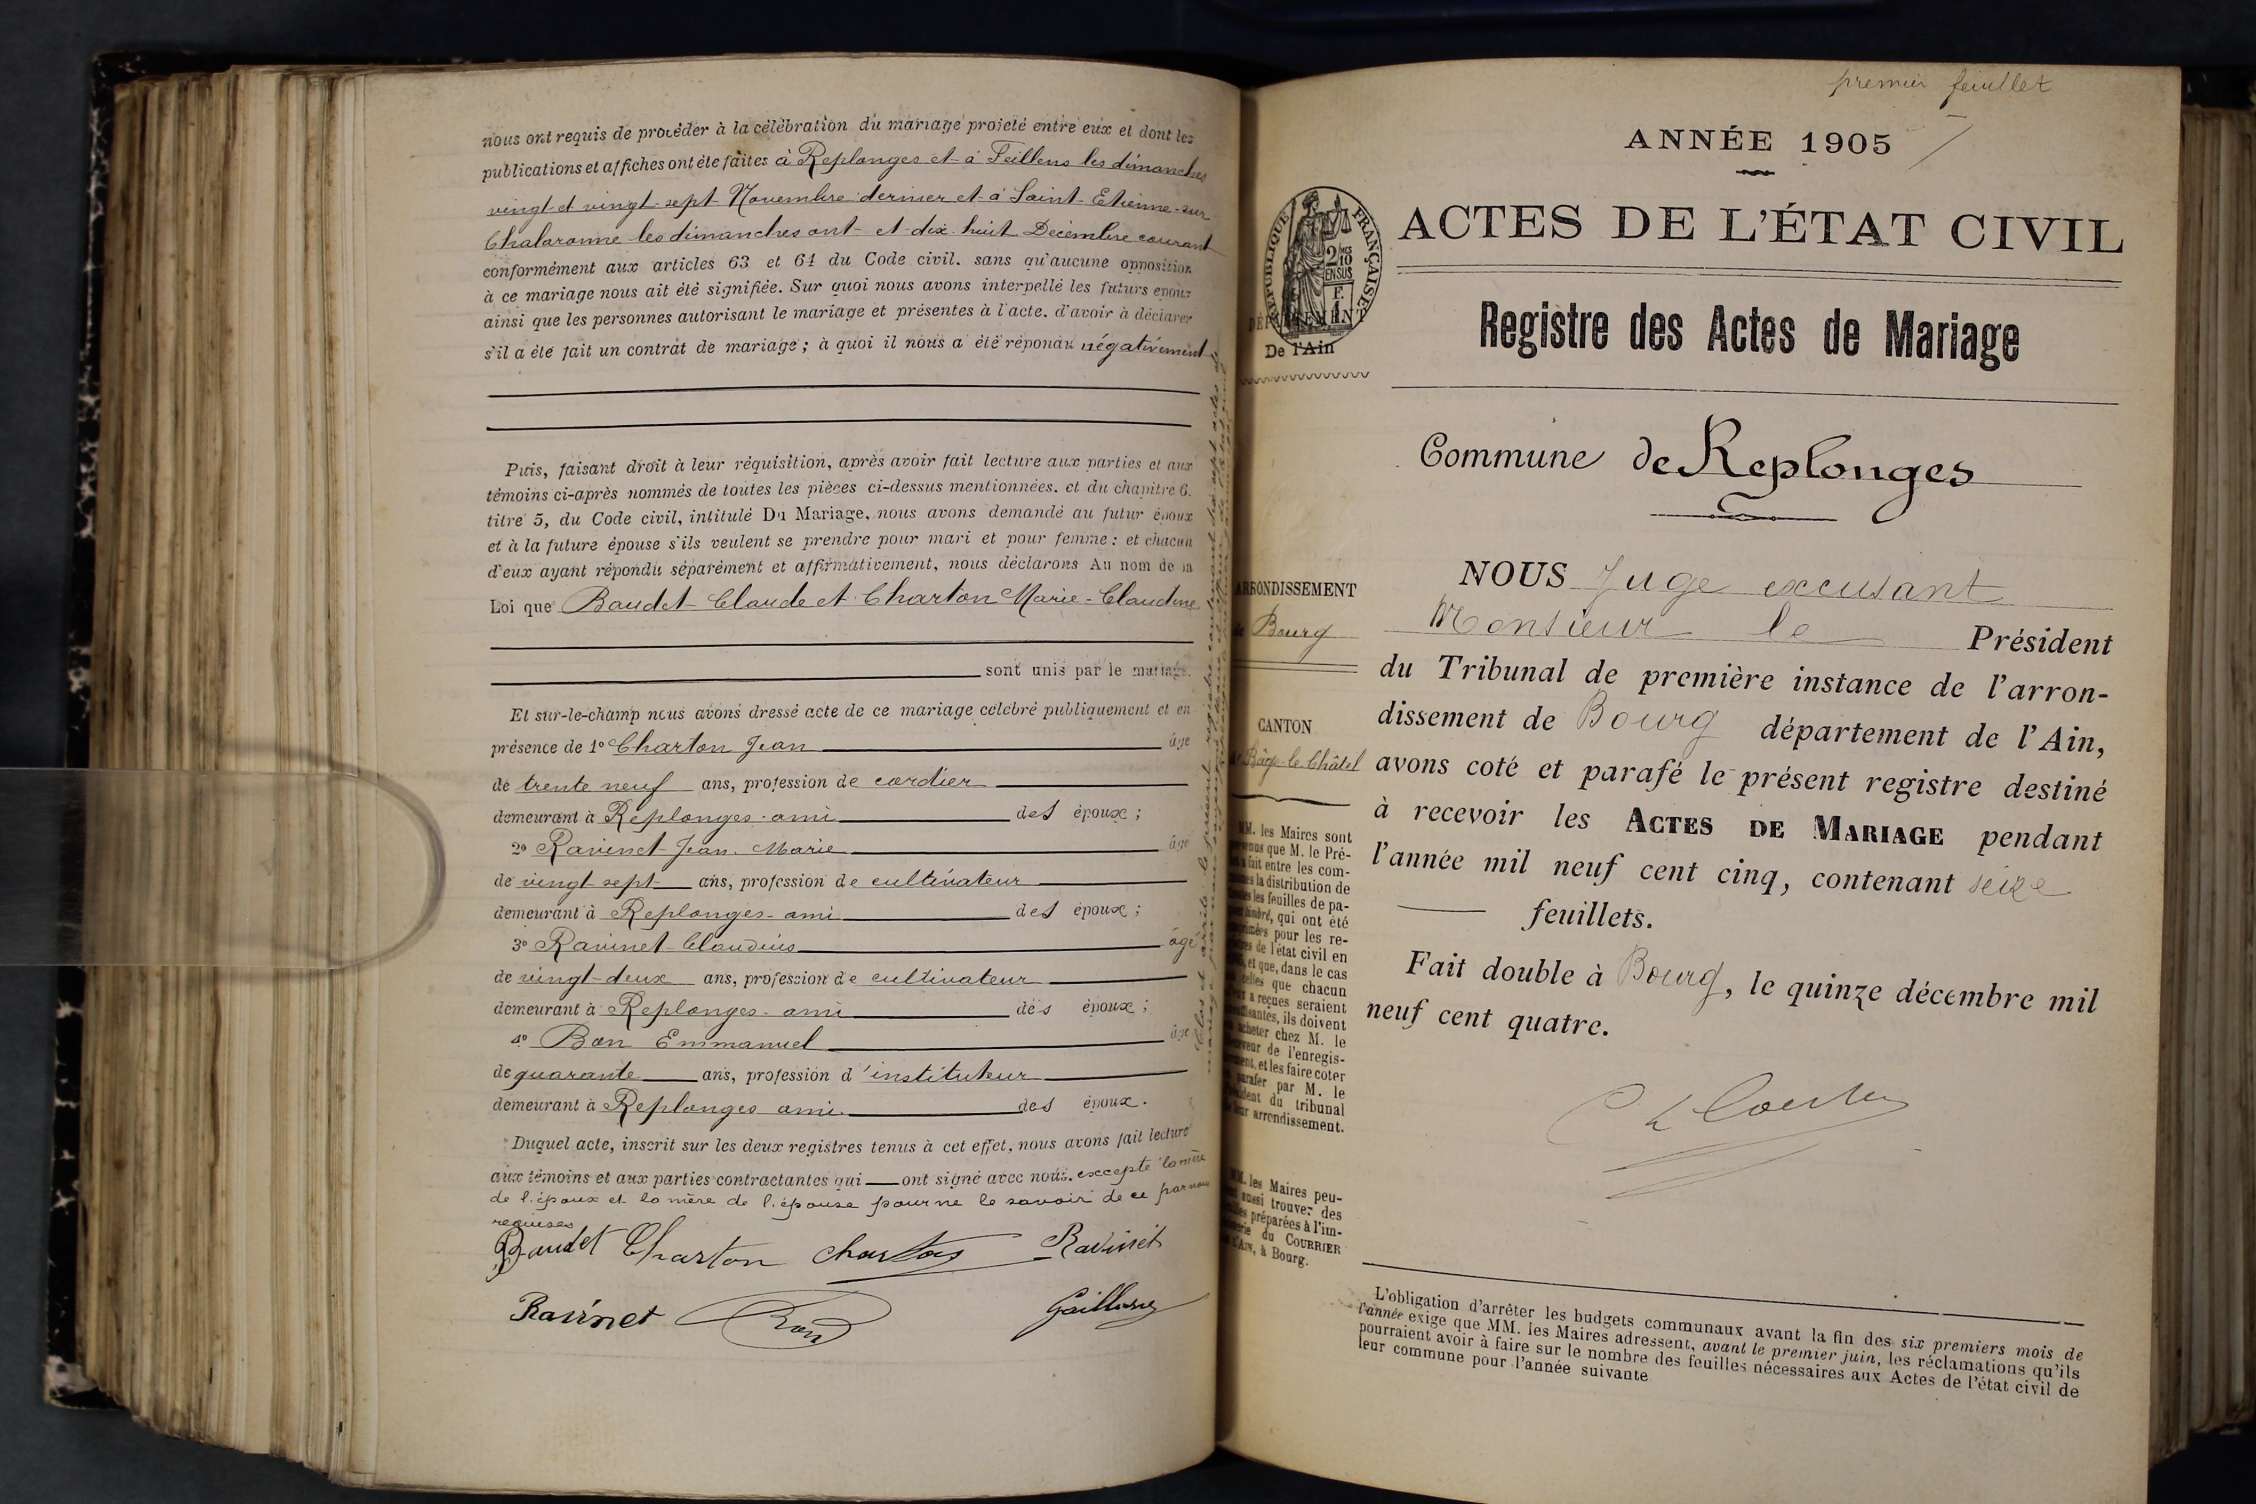 nous ont requis de procéder à la célébration du mariage projeté entre eux et dont les
publications et affiches ont été faites à Replonges et à Feillens les dimanches
vingt et vingt-sept Novembre dernier et à Saint-Etienne-sur
Chalaronne les dimanches ont et dix huit Décembre courant
conformément aux articles 63 et 64 du Code civil. sans qu'aucune opposition
à ce mariage nous ait été signifiée. Sur quoi nous avons interpellé les futurs époux
ainsi que les personnes autorisant le mariage et présentes à l'acte, d'avoir à déclarer
s'il a été fait un contrat de mariage; à quoi il nous a été répondu négativement
Puis, faisant droit à leur réquisition, après avoir fait lecture aux parties et aux
témoins ci-après nommés de toutes les pièces ci-dessus mentionnées, et du chapitre 6.
titre 5, du Code civil, intitulé Du Mariage, nous avons demandé au futur époux
et à la future épouse s'ils veulent se prendre pour mari et pour femme: et chacun
d'eux ayant répondu séparément et affirmativement, nous déclarons Au nom de la
Loi que Baudet Claude et Charton Marie-Claudine
sont unis par le mariage.
Et sur-le-champ nous avons dressé acte de ce mariage célébré publiquement et en
présence de 1º Charton Jean âgé
de trente neuf ans, profession de cordier
demeurant à Replonges ami des époux;
2º Ravinet Jean Marie âgé
de vingt sept ans, profession de cultivateur
demeurant à Replonges ami des époux;
3º Ravinet Claudius âgé
de vingt-deux ans, profession de cultivateur
demeurant à Replonges ami des époux;
4º Bon Emmanuel âgé
de quarante ans, profession d'instituteur
demeurant à Replonges ami des époux.
Duquel acte, inscrit sur les deux registres tenus à cet effet, nous avons fait lecture
aux témoins et aux parties contractantes qui ont signé avec nous. excepté la mère
de l'époux et la mère de l'épouse pour ne le savoir de ce par nous
requises
Baudet Charton Charton Ravinet
Ravinet Bon
premier feuillet
ANNÉE 1905
ACTES DE L'ÉTAT CIVIL
RÉPUBLIQUE FRANÇAISE
DÉPARTEMENT
De l'Ain
Registre des Actes de Mariage
Commune de Replonges
ARRONDISSEMENT
de Bourg
CANTON
de Bâgé-le-Châtel
NOUS Juge excusant
Monsieur le Président
du Tribunal de première instance de l'arron-
dissement de Bourg département de l'Ain,
avons coté et parafé le présent registre destiné
à recevoir les ACTES DE MARIAGE pendant
l'année mil neuf cent cinq, contenant seize
feuillets.
Fait double à Bourg, le quinze décembre mil
neuf cent quatre.
MM. les Maires sont
que M. le Pré-
fait entre les com-
la distribution de
les feuilles de pa-
timbré, qui ont été
pour les re-
de l'état civil en
et que, dans le cas
celles que chacun
a reçues seraient
ils doivent
acheter chez M. le
de l'enregis-
et les faire coter
parafer par M. le
du tribunal
leur arrondissement.
MM. les Maires peu-
aussi trouver des
préparées à l'im-
du COURRIER
DE L'AIN, à Bourg.
L'obligation d'arrêter les budgets communaux avant la fin des six premiers mois de
l'année exige que MM. les Maires adressent, avant le premier juin, les réclamations qu'ils
pourraient avoir à faire sur le nombre des feuilles nécessaires aux Actes de l'état civil de
leur commune pour l'année suivante